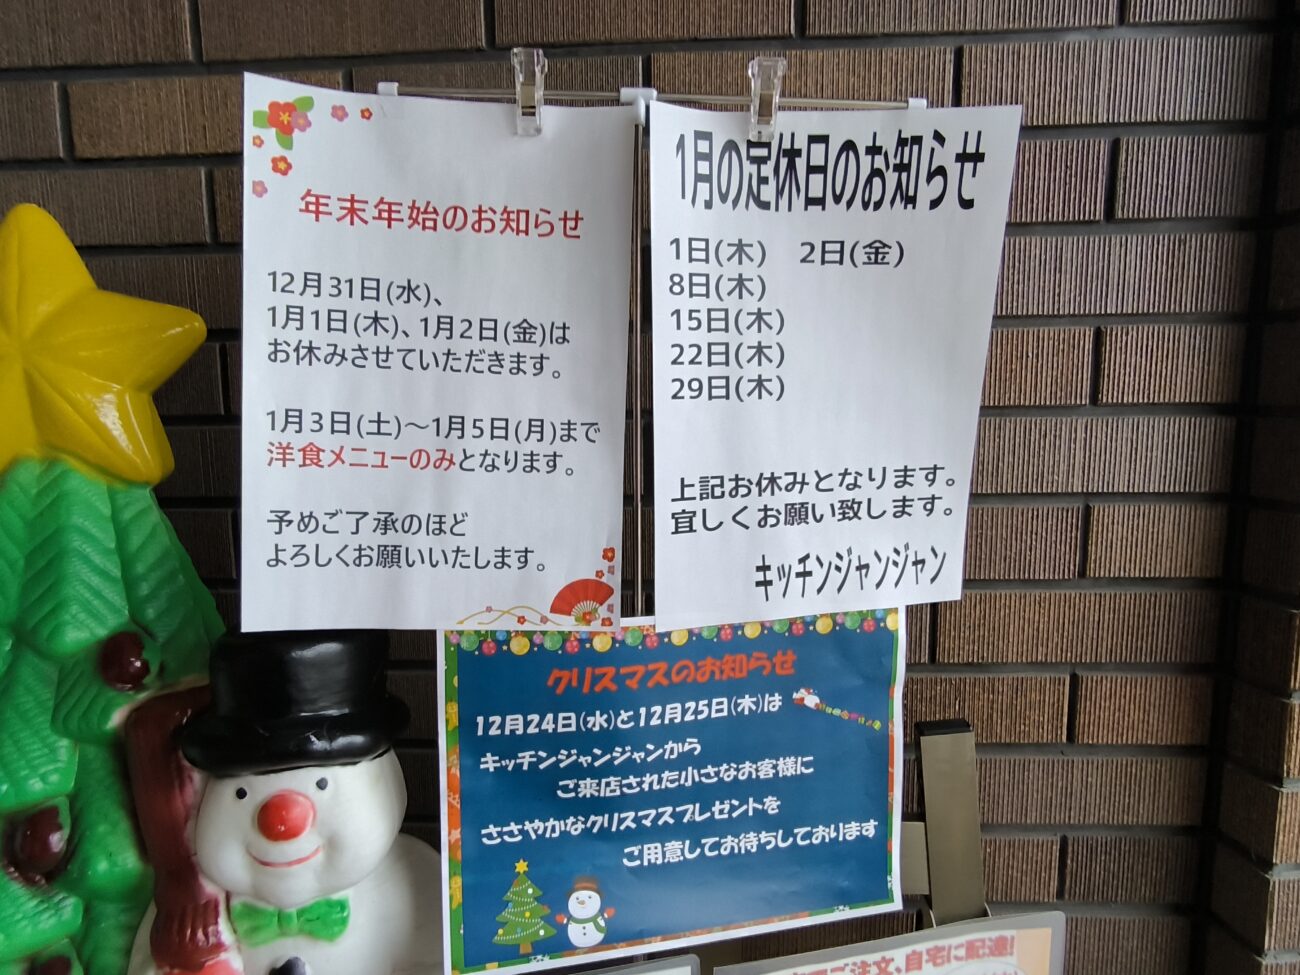 年末年始のお知らせ
12月31日(水)、
1月1日(木)、1月2日(金)は
お休みさせていただきます。
1月3日(土)～1月5日(月)まで
洋食メニューのみとなります。
予めご了承のほど
よろしくお願いいたします。
1月の定休日のお知らせ
1日(木) 2日(金)
8日(木)
15日(木)
22日(木)
29日(木)
上記お休みとなります。
宜しくお願い致します。
キッチンジャンジャン
クリスマスのお知らせ
12月24日(水)と12月25日(木)は
キッチンジャンジャンから
ご来店された小さなお客様に
ささやかなクリスマスプレゼントを
ご用意してお待ちしております
ご注文、自宅に配達!